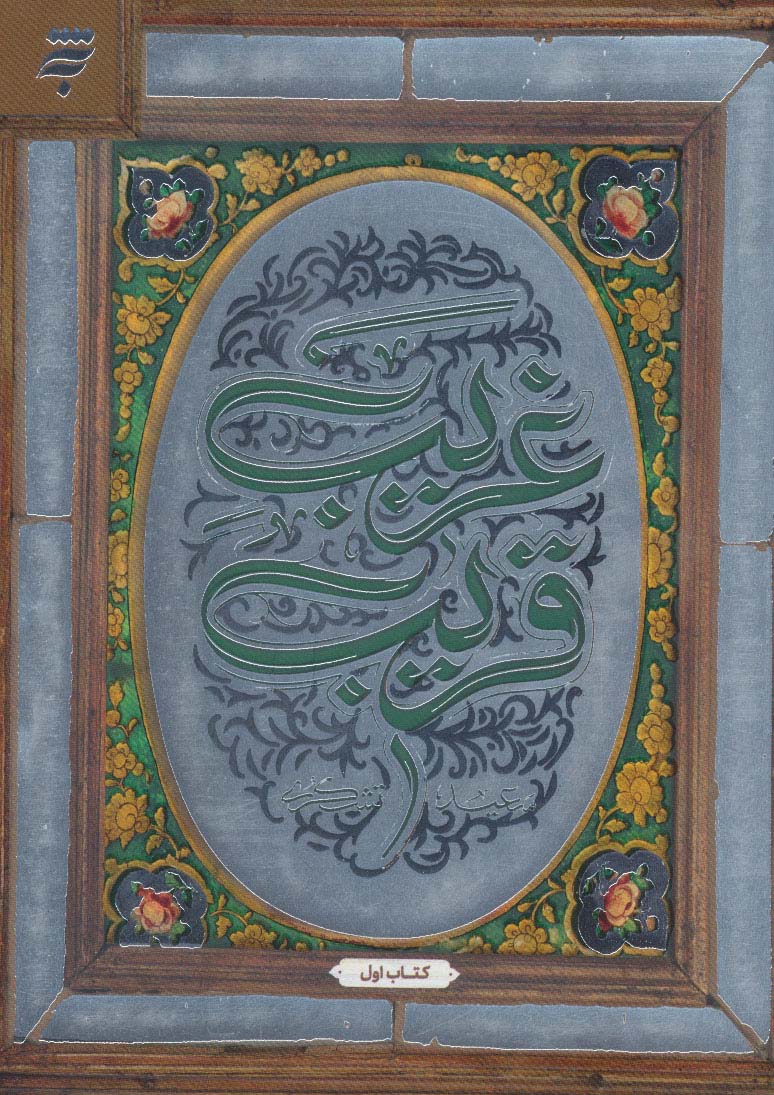 غریب
قریب
سعید تشکری
کتاب اول